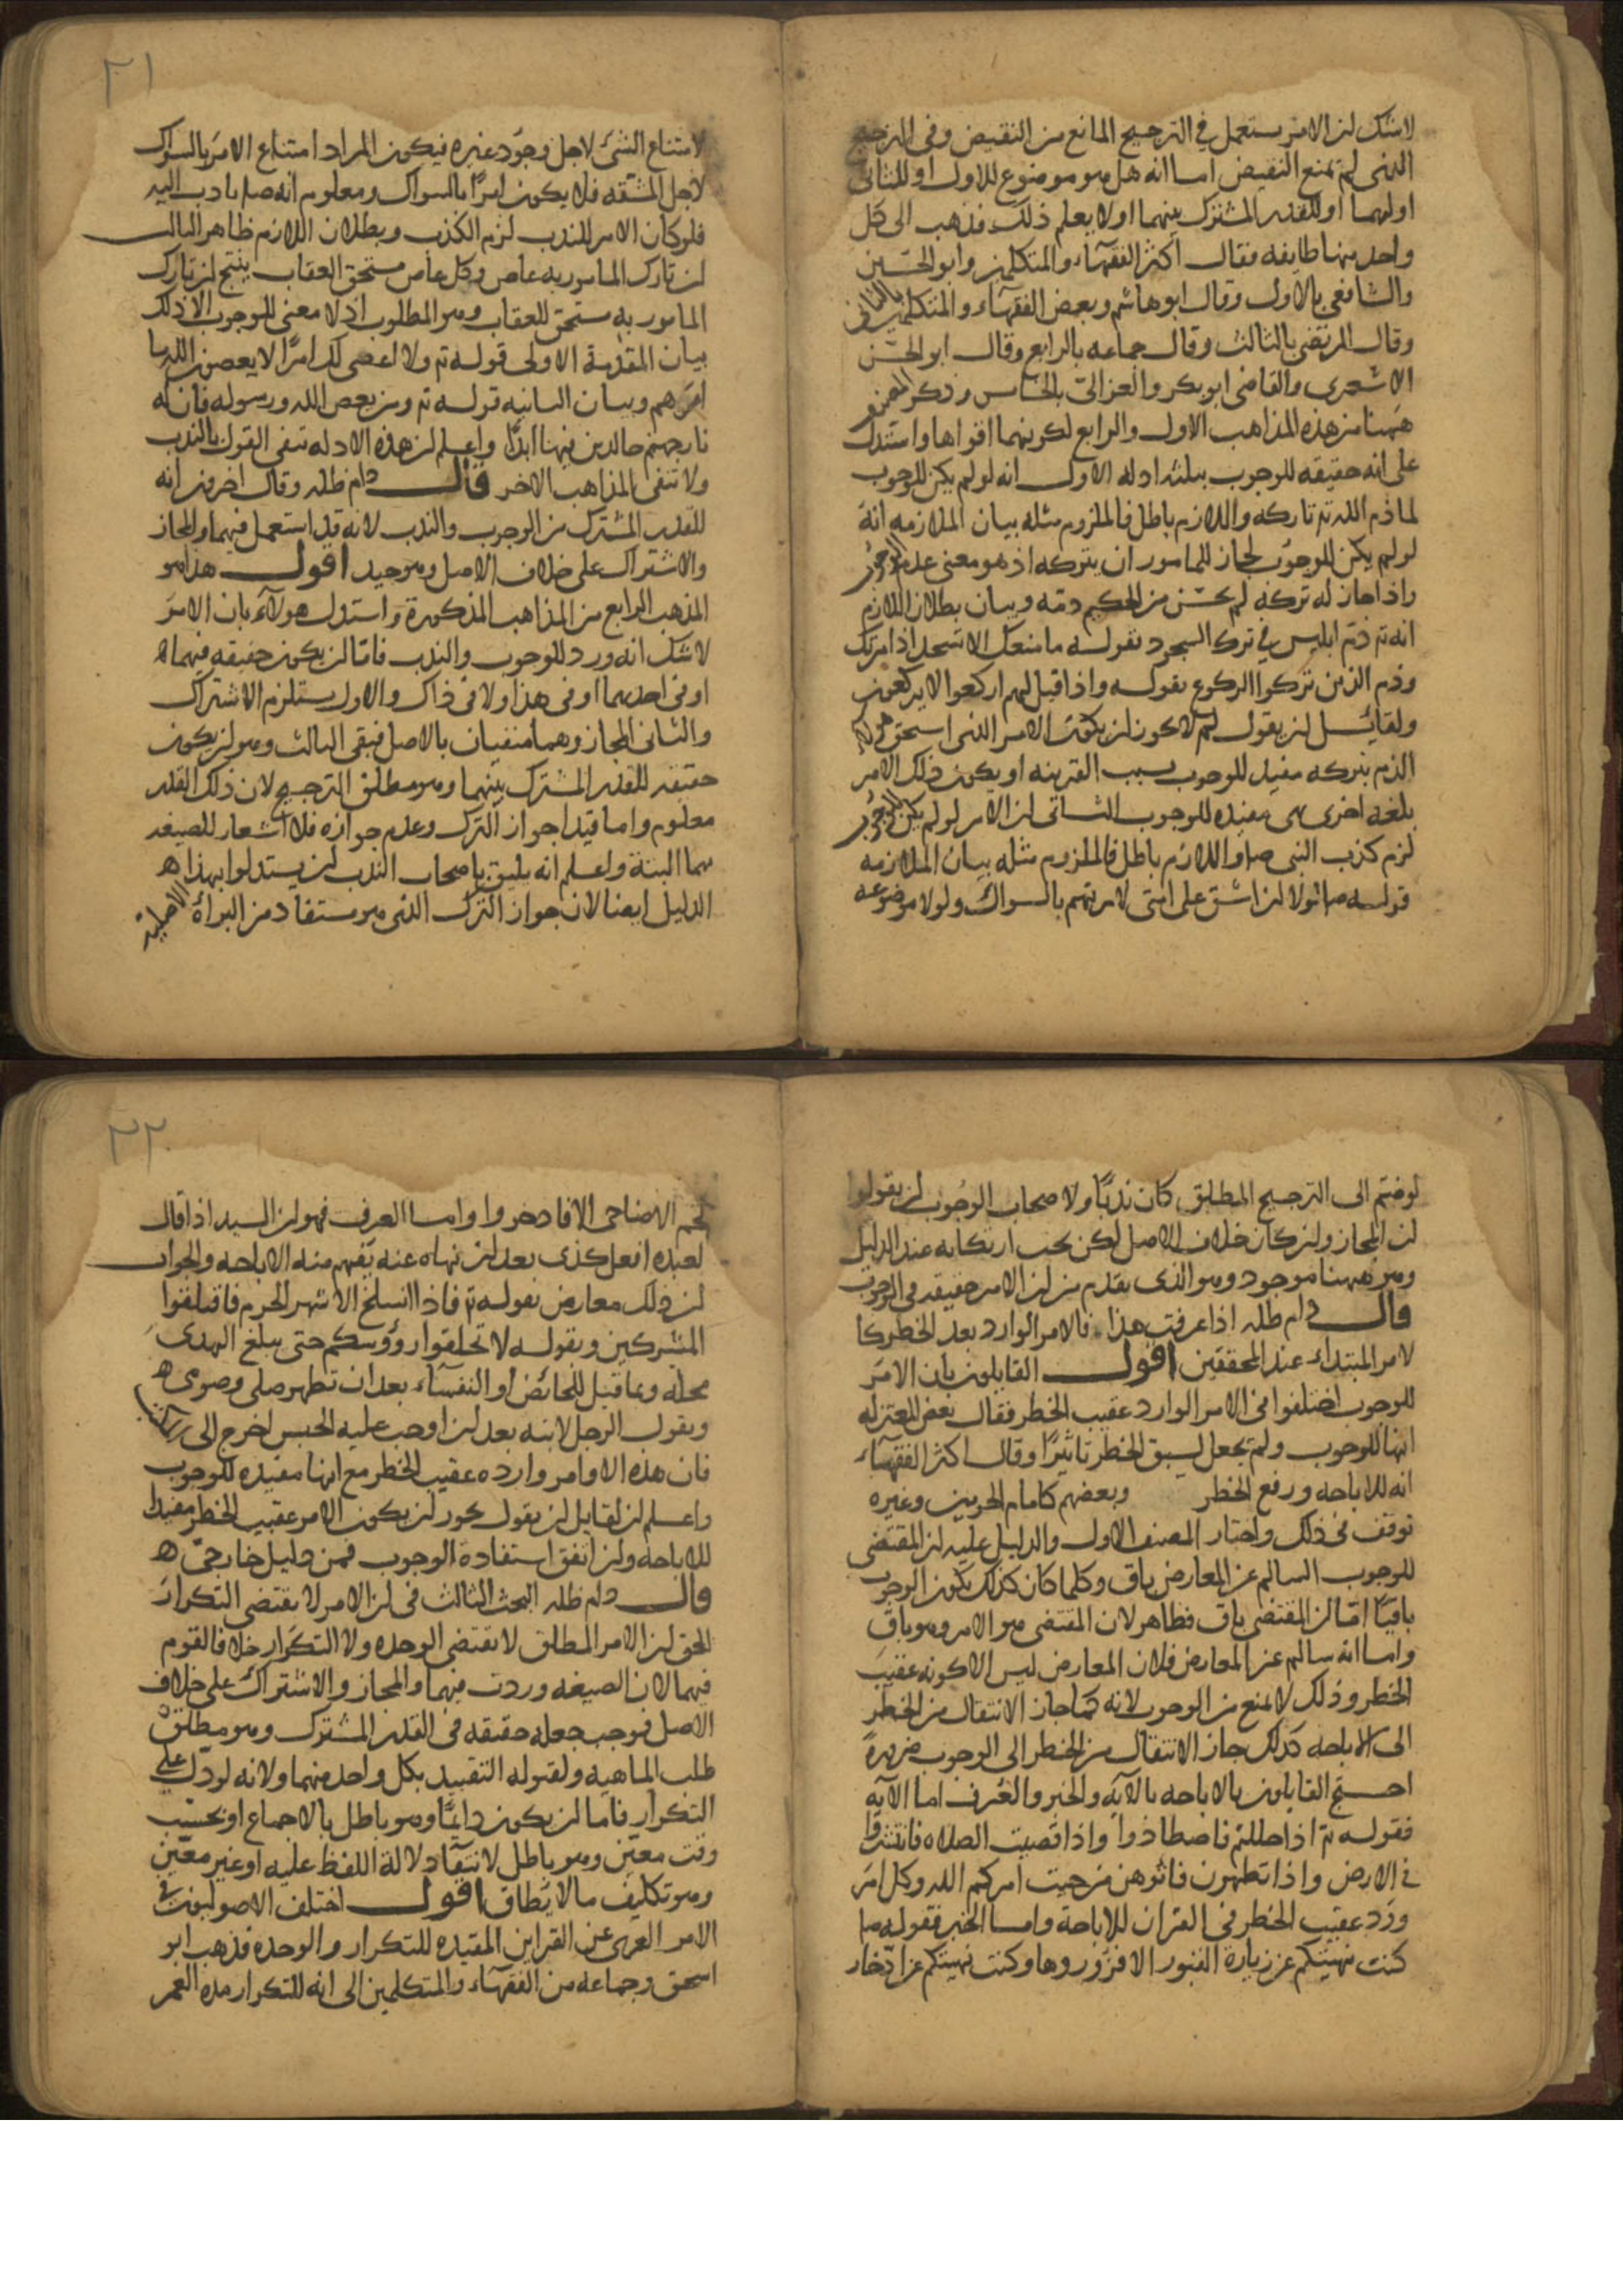 لاشك لن الامر يستعمل في الترجيح المانع من النقيض وفى الترجيح
الذى لم يمنع النقيض اما انه هل هو موضوع للاول او للثانى
اولهما او للقدر المشترك بينهما اولا يعلم ذلك فذهب الى كل
واحد منها طايفه فقال اكثر الفقهآء والمتكلمين وابو الحسين
والشافعى بالاول وقال ابو هاشم وبعض الفقهآء والمتكلمين بالثانى
وقال المرتضى بالثالث وقال جماعه بالرابع وقال ابو الحسن
الاشعرى والقاضى ابو بكر والغزالى بالخامس وذكر المصنف
ههنا من هذه المذاهب الاول والرابع لكونهما اقواها واستدل
على انه حقيقه للوجوب بثلثه ادله الاول انه لو لم يكن للوجوب
لما ذم الله تم تاركه واللازم باطل فالملزوم مثله بيان الملازمه انه
لو لم يكن للوجوب لجاز للمامور ان يتركه اذ هو معنى عدم الوجوب
واذا جاز له تركه لم يحسن من الحكيم ذمه وبيان بطلان اللازم
انه تم ذم ابليس في ترك السجود بقوله ما منعك الا تسجد اذ امرتك
وذم الذين تركوا الركوع بقوله واذا قيل لهم اركعوا لا يركعون
ولقايل لن يقول لم لا يجوز لن يكون الامر الذى استحق هولآء
الذم بتركه مفيد للوجوب بسبب القرينه او يكون ذلك الامر
بلغه اخرى هى مفيده للوجوب الثانى لن الامر لو لم يكن للوجوب
لزم كذب النبى صلم واللازم باطل فالملزوم مثله بيان الملازمه
قوله صلم لولا لن اشق على امتى لامرتهم بالسواك ولولا موضوعه
٢١
لامتناع الشئ لاجل وجود غيره فيكون المراد امتناع الامر بالسواك
لاجل المشقه فلا يكون امرًا بالسواك ومعلوم انه صلم نادب اليه
فلو كان الامر للندب لزم الكذب وبطلان اللازم ظاهر الثالث
لن تارك المامور به عاص وكل عاص مستحق العقاب ينتج لن تارك
المامور به مستحق للعقاب وهو المطلوب اذ لا معنى للوجوب الا ذلك
بيان المقدمة الاولى قوله تم ولا اعصى لك امرًا لا يعصون الله ما
امرهم وبيان الثانيه قوله تم ومن يعص الله ورسوله فان له
نار جهنم خالدين فيها ابدًا واعلم لن هذه الادله تنفى القول بالندب
ولا تنفى المذاهب الاخر قال دام ظله وقال اخرون انه
للقدر المشترك من الوجوب والندب لانه قد استعمل فيهما والمجاز
والاشتراك على خلاف الاصل وهو جيد اقول هذا هو
المذهب الرابع من المذاهب المذكورة واستدل هولآء بان الامر
لاشك انه ورد للوجوب والندب فاما لن يكون حقيقه فيهما
او فى احدهما او فى هذا ولا فى ذاك والاول يستلزم الاشتراك
والثانى المجاز وهما منفيان بالاصل فبقى الثالث وهو لن يكون
حقيقه للقدر المشترك بينهما وهو مطلق الترجيح لان ذلك القدر
معلوم واما قيدا جواز الترك وعدم جوازه فلا اشعار للصيغه
بهما البتة واعلم انه يليق باصحاب الندب لن يستدلوا بهذا
الدليل ايضا لان جواز الترك الذى هو مستفاد من البرأة الاصلية
لو ضم الى الترجيح المطلق كان ندبًا ولاصحاب الوجوب لن يقولوا
لن المجاز ولن كان خلاف الاصل لكن يجب ارتكابه عند الدليل
وهو ههنا موجود وهو الذى تقدم من لن الامر حقيقه فى الوجوب
قال دام ظله اذا عرفت هذا فالامر الوارد بعد الخطر كا
لامر المبتداء عند المحققين اقول القايلون بان الامر
للوجوب اختلفوا فى الامر الوارد عقيب الخطر فقال بعض المعتزله
انها للوجوب ولم يجعل لسبق الخطر تاثيرًا وقال اكثر الفقهآء
انه للاباحه ورفع الخطر وبعضهم كامام الحرمين وغيره
توقف فى ذلك واختار المصنف الاول والدليل عليه لن المقتضى
للوجوب السالم عن المعارض باق وكلما كان كذلك يكون الوجوب
باقيًا اما لن المقتضى باق فظاهر لان المقتضى هو الامر وهو باق
واما انه سالم عن المعارض فلان المعارض ليس الا كونه عقيب
الخطر وذلك لا يمنع من الوجوب لانه كما جاز الانتقال من الخطر
الى الاباحه كذلك جاز الانتقال من الخطر الى الوجوب ضرورةً
احتج القايلون بالاباحه بالآيه والخبر والعرف اما الآيه
فقوله تم اذا حللتم فاصطادوا واذا قضيت الصلاه فانتشروا
فى الارض واذا تطهرن فاتوهن من حيث امركم الله وكل امر
ورد عقيب الخطر فى القران للاباحة واما الخبر فقوله صلم
كنت نهيتكم عن زيارة القبور الا فزوروها وكنت نهيتكم عن ادخار
٢٢
لحم الاضاحى الا فادخروا واما العرف فهو لن السيد اذا قال
لعبده افعل كذى بعد لن نهاه عنه يفهم منه الاباحه والجواب
لن ذلك معارض بقوله تم فاذا انسلخ الاشهر الحرم فاقتلوا
المشركين وبقوله لا تحلقوا رؤوسكم حتى يبلغ الهدى
محله وبما قيل للحائض او النفسآء بعد ان تطهر صلى وصومى
وبقول الرجل لابنه بعد لن اوجب عليه الحبس اخرج الى المكتب
فان هذه الاوامر وارده عقيب الخطر مع انها مفيده للوجوب
واعلم لن لقايل لن يقول يجوز لن يكون الامر عقيب الخطر مفيدا
للاباحه ولن اتفق استفادة الوجوب فمن دليل خارجىّ
قال دام ظله البحث الثالث فى لن الامر لا يقتضى التكرار
الحق لن الامر المطلق لا يقتضى الوحده ولا التكرار خلافا لقوم
فيهما لان الصيغه وردت فيهما والمجاز والاشتراك على خلاف
الاصل فوجب جعله حقيقه فى القدر المشترك وهو مطلق
طلب الماهيه ولقبوله التقييد بكل واحد منهما ولانه لو دلّ على
التكرار فاما لن يكون دايمًا وهو باطل بالاجماع او بحسب
وقت معين وهو باطل لانتفآء دلالة اللفظ عليه او غير معين
وهو تكليف ما لا يطاق اقول اختلف الاصوليون فى
الامر العرى عن القراين المقيده للتكرار والوحده فذهب ابو
اسحق وجماعه من الفقهآء والمتكلمين الى انه للتكرار مدة العمر